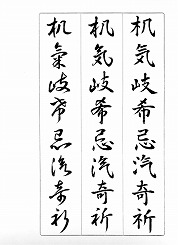 机気岐希忌汽奇祈
机気岐希忌汽奇祈
机氣岐希忌汽奇祈